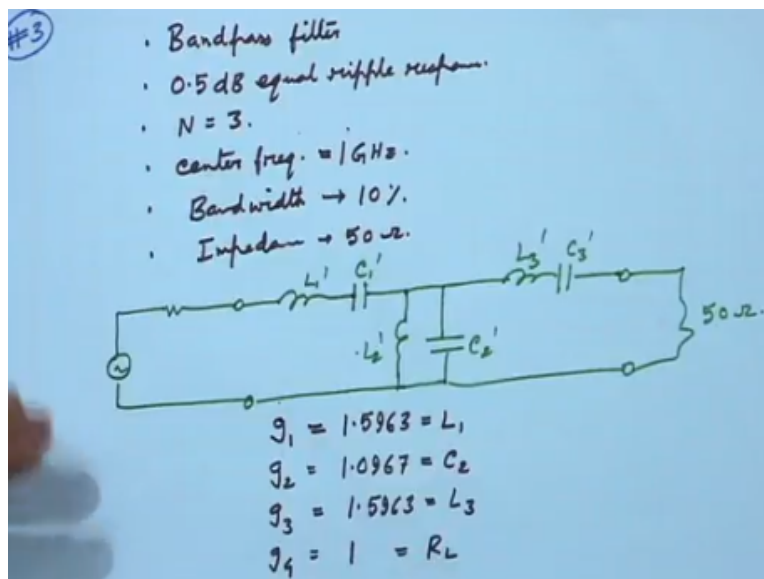 #3
· Bandpass filter
· 0.5 dB equal ripple respons.
· N = 3.
· center freq. = 1 GHz.
· Bandwidth → 10%.
· Impedan → 50 Ω.
L₁' C₁' L₃' C₃'
L₂' C₂' 50 Ω.
g₁ = 1.5963 = L₁
g₂ = 1.0967 = C₂
g₃ = 1.5963 = L₃
g₄ = 1 = R_L